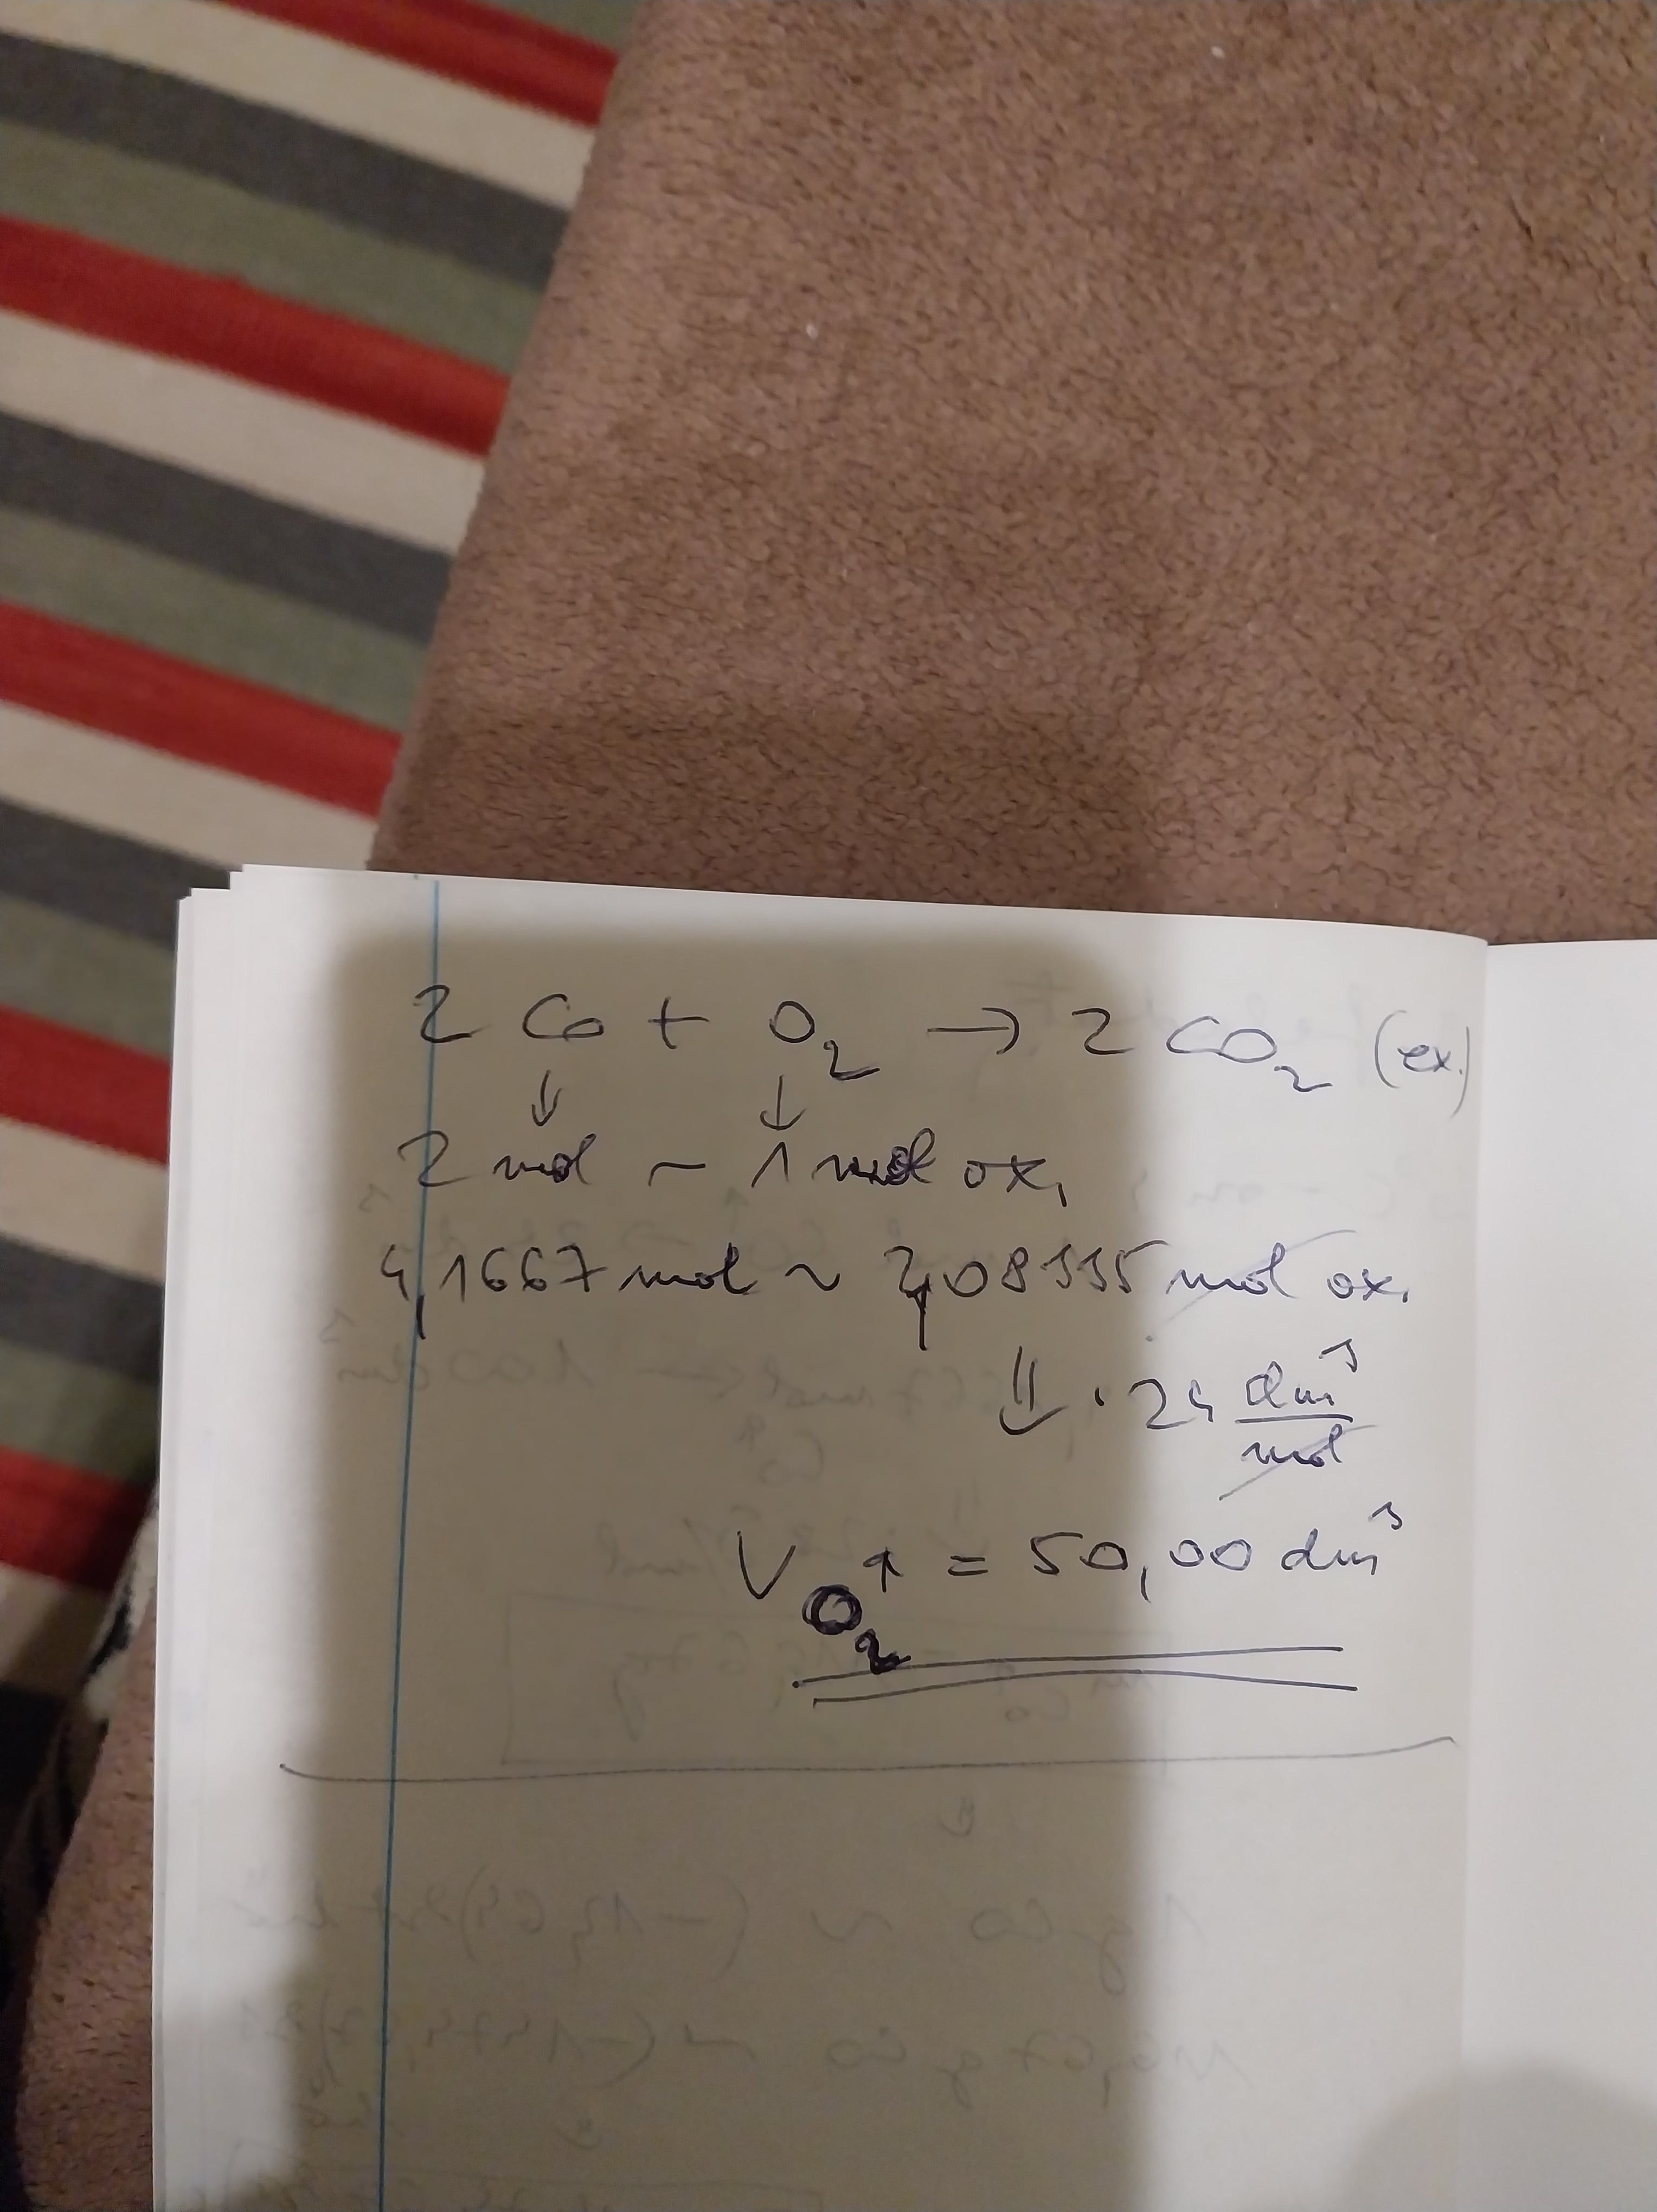 2 CO + O₂ → 2 CO₂ (ex.)
↓ ↓
2 mol ~ 1 mol ox.
4,1667 mol ~ 2,08335 mol ox.
⇓ · 24 dm³/mol
V O₂↑ = 50,00 dm³